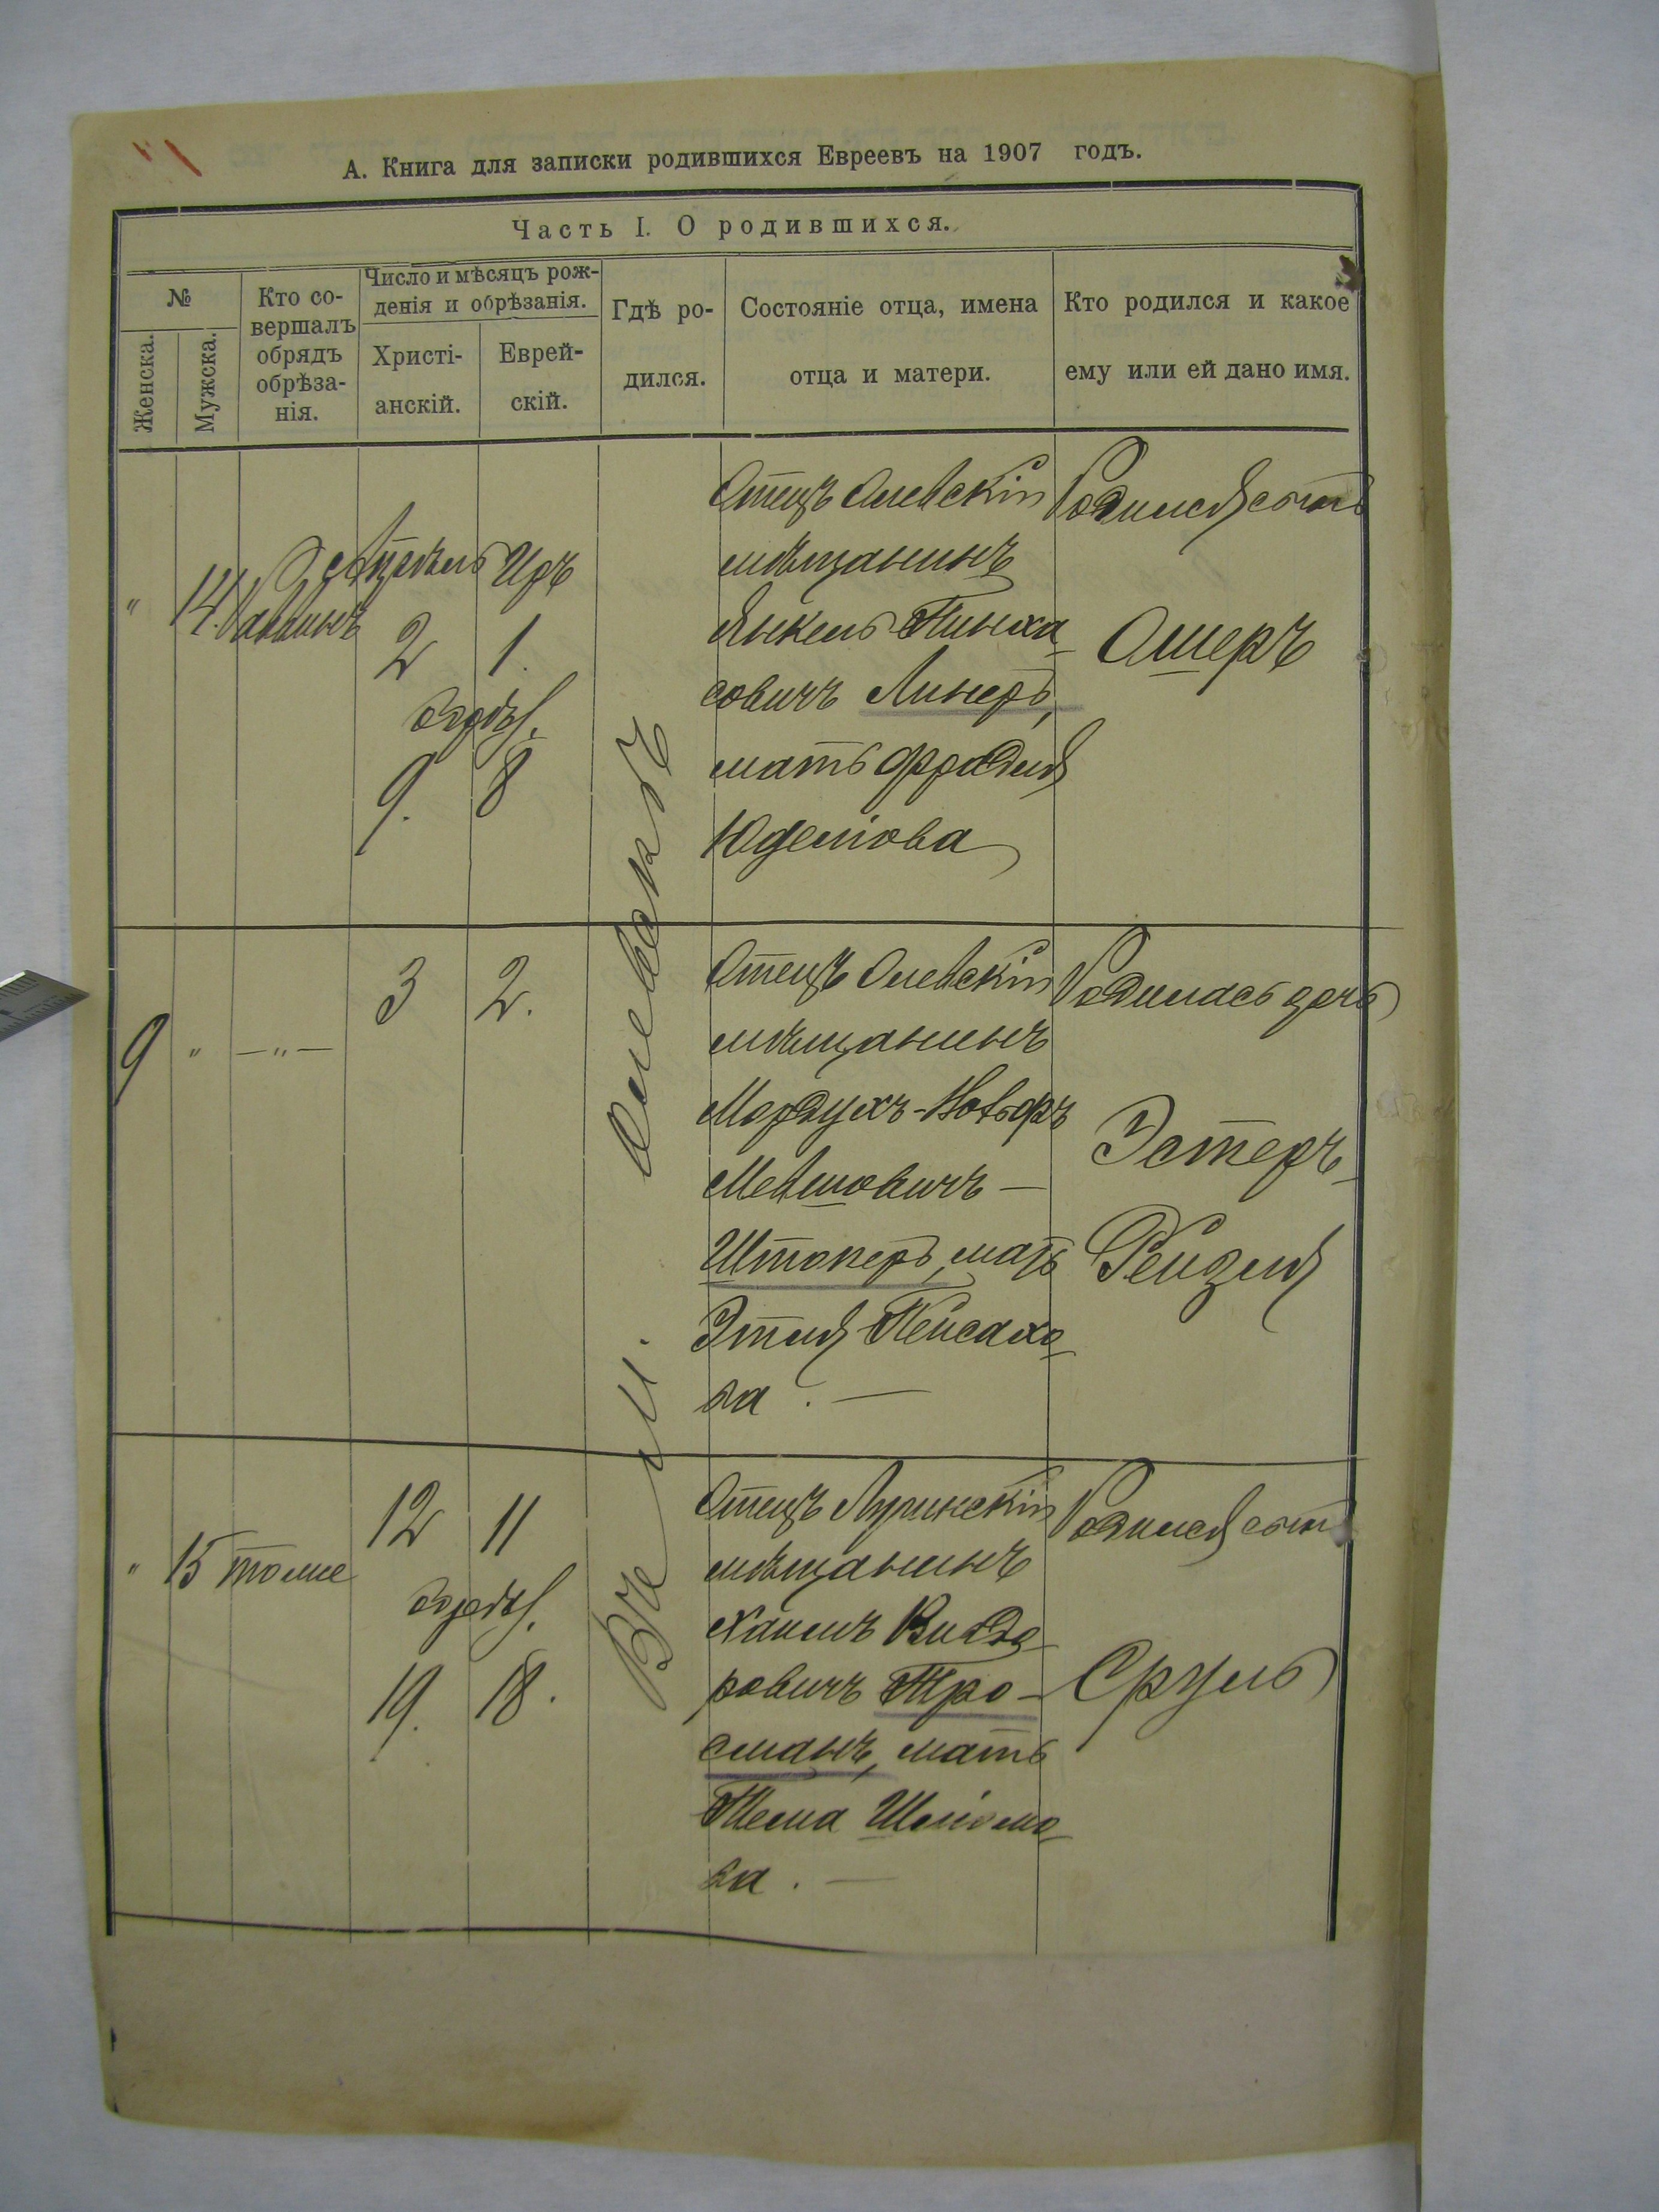 А. Книга для записки родившихся Евреевъ на 1907 годъ.
Часть I. О родившихся.
№
Женска.
Мужска.
Кто со-
вершалъ
обрядъ
обрѣза-
нія.
Число и мѣсяцъ рож-
денія и обрѣзанія.
Христі-
анскій.
Еврей-
скій.
Гдѣ ро-
дился.
Состояніе отца, имена
отца и матери.
Кто родился и какое
ему или ей дано имя.
"
14.
Раввинъ
Апрѣль
2
Иръ
1.
обрѣз.
9.
8
Въ м. Олевскѣ
Отецъ Олевскій
мѣщанинъ
Янкель Пинха-
совичъ Линеръ,
мать Фрадля
Юделіова
Родился сынъ
Ошеръ
9
"
—"—
3
2.
Отецъ Олевскій
мѣщанинъ
Мордухъ-
Мевшовичъ —
Штоперъ, мать
Этля Пейсахо-
ва. —
Родилась дочь
Эстеръ-
Рейзля
"
15
тоже
12
11
обрѣз.
19.
18.
Отецъ
мѣщанинъ
Хаимъ
ровичъ Тро-
сманъ, мать
Тема Шліомо-
ва. —
Родился сынъ
Сруль